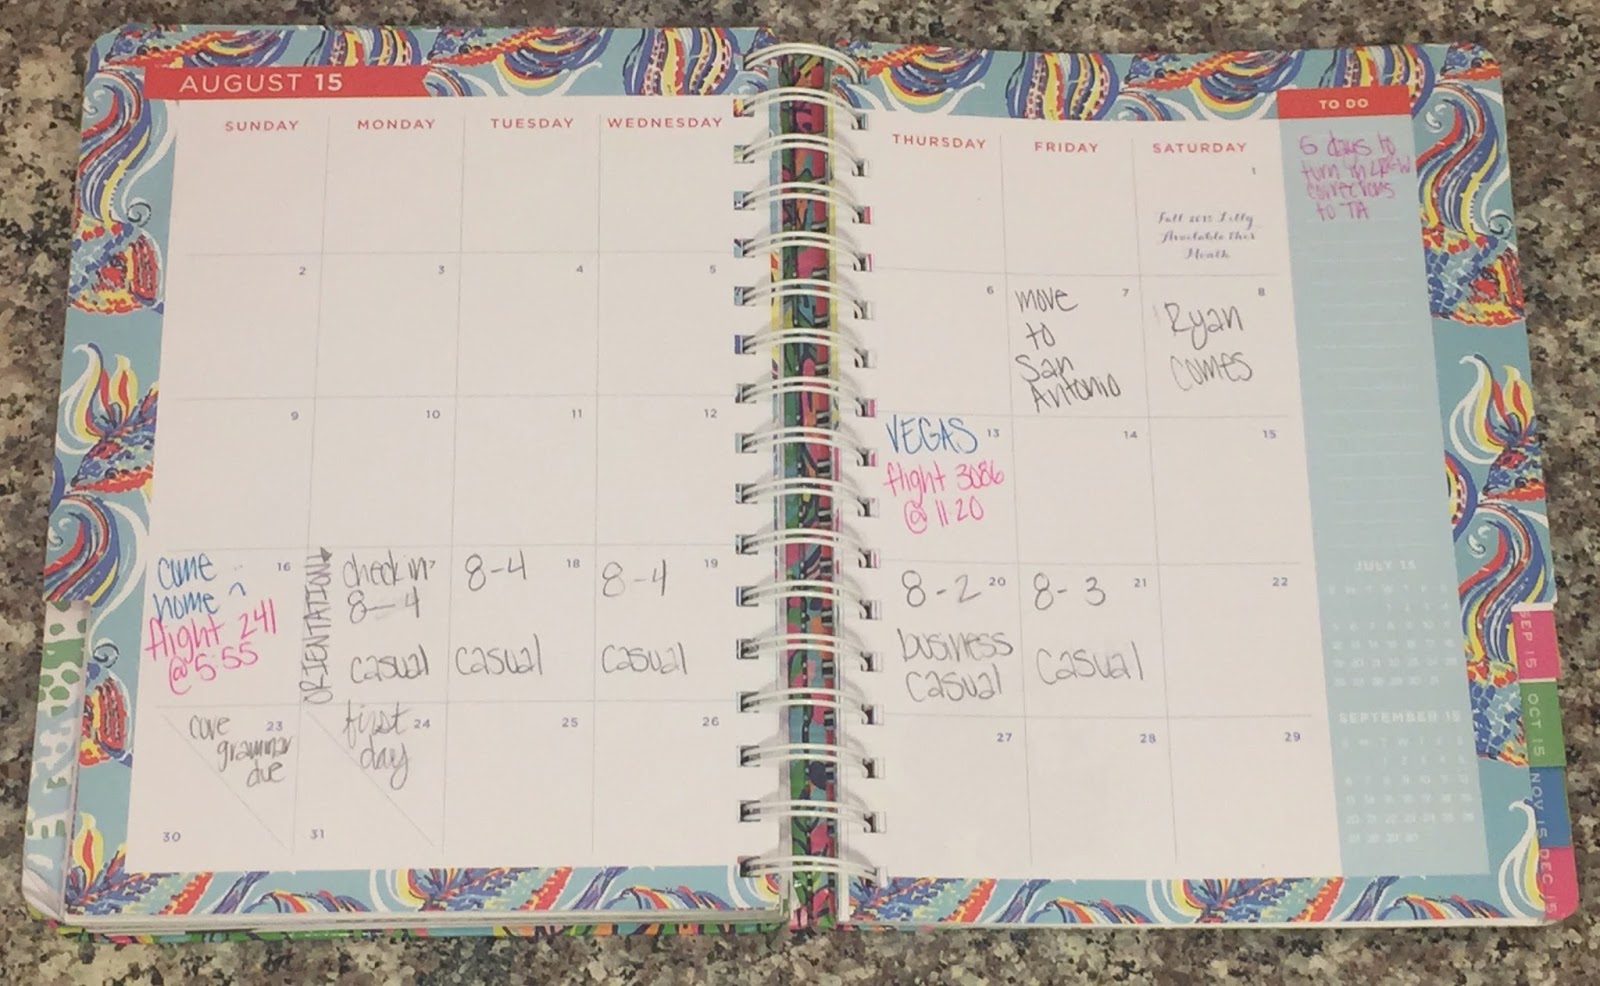 AUGUST 15
SUNDAY MONDAY TUESDAY WEDNESDAY
THURSDAY FRIDAY SATURDAY
TO DO
days to
turn in
corrections
to TA
1
Fall 2015 Lilly
Available this
Month
2 3 4 5
6 7 8
move
to
San
Antonio
Ryan
comes
9 10 11 12
13 14 15
VEGAS
flight 3086
@ 11:20
16
come
home
flight 241
@ 5:55
ORIENTATION
check in
8-4
casual
18
8-4
casual
19
8-4
casual
20
8-2
business
casual
21
8-3
casual
22
23
grammar
due
24
first
day
25 26
27 28 29
30 31
JULY 15
SEPTEMBER 15
SEP 15
OCT 15
NOV 15
DEC 15